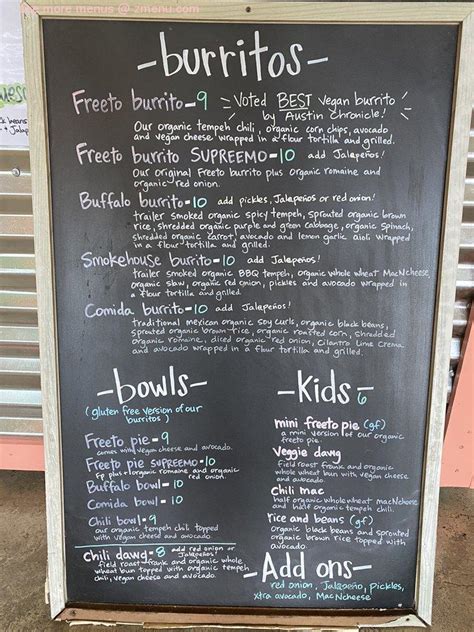 more menus @ zmenu.com
-burritos-
Freeto burrito-9 Voted BEST vegan burrito
by Austin Chronicle!
Our organic tempeh chili, organic corn chips, avocado
and vegan cheese wrapped in a flour tortilla and grilled.
Freeto burrito SUPREEMO-10 add Jalapeños!
Our original Freeto burrito plus organic romaine and
organic red onion.
Buffalo burrito-10 add pickles, Jalapeños or red onion!
trailer smoked organic spicy tempeh, sprouted organic brown
rice, shredded organic purple and green cabbage, organic spinach,
shredded organic carrot, avocado and lemon garlic aioli wrapped
in a flour tortilla and grilled.
Smokehouse burrito-10 add Jalapeños!
trailer smoked organic BBQ tempeh, organic whole wheat MacNcheese,
organic slaw, organic red onion, pickles and avocado wrapped in
a flour tortilla and grilled.
Comida burrito-10 add Jalapeños!
traditional mexican organic soy curls, organic black beans,
sprouted organic brown rice, organic roasted corn, shredded
organic romaine, diced organic red onion, Cilantro Lime Crema
and avocado wrapped in a flour tortilla and grilled.
-bowls-
(gluten free version of our
burritos)
Freeto pie-9
comes w/ vegan cheese and avocado.
Freeto pie SUPREEMO-10
fp plus organic romaine and organic
red onion.
Buffalo bowl-10
Comida bowl-10
Chili bowl-9
our organic tempeh chili topped
with vegan cheese and avocado.
Chili dawg-8 add red onion or
Jalapeños!
field roast frank and organic whole
wheat bun topped with organic tempeh
chili, vegan cheese and avocado.
-Kids-
6
mini freeto pie (gf)
a mini version of our organic
freeto pie.
Veggie dawg
field roast frank and organic
whole wheat bun with vegan cheese
and avocado.
Chili mac
half organic whole wheat macNcheese
and half organic tempeh chili.
rice and beans (gf)
organic black beans and sprouted
organic brown rice topped with
avocado.
-Add ons-
red onion, Jalapeño, Pickles,
xtra avocado, MacNcheese